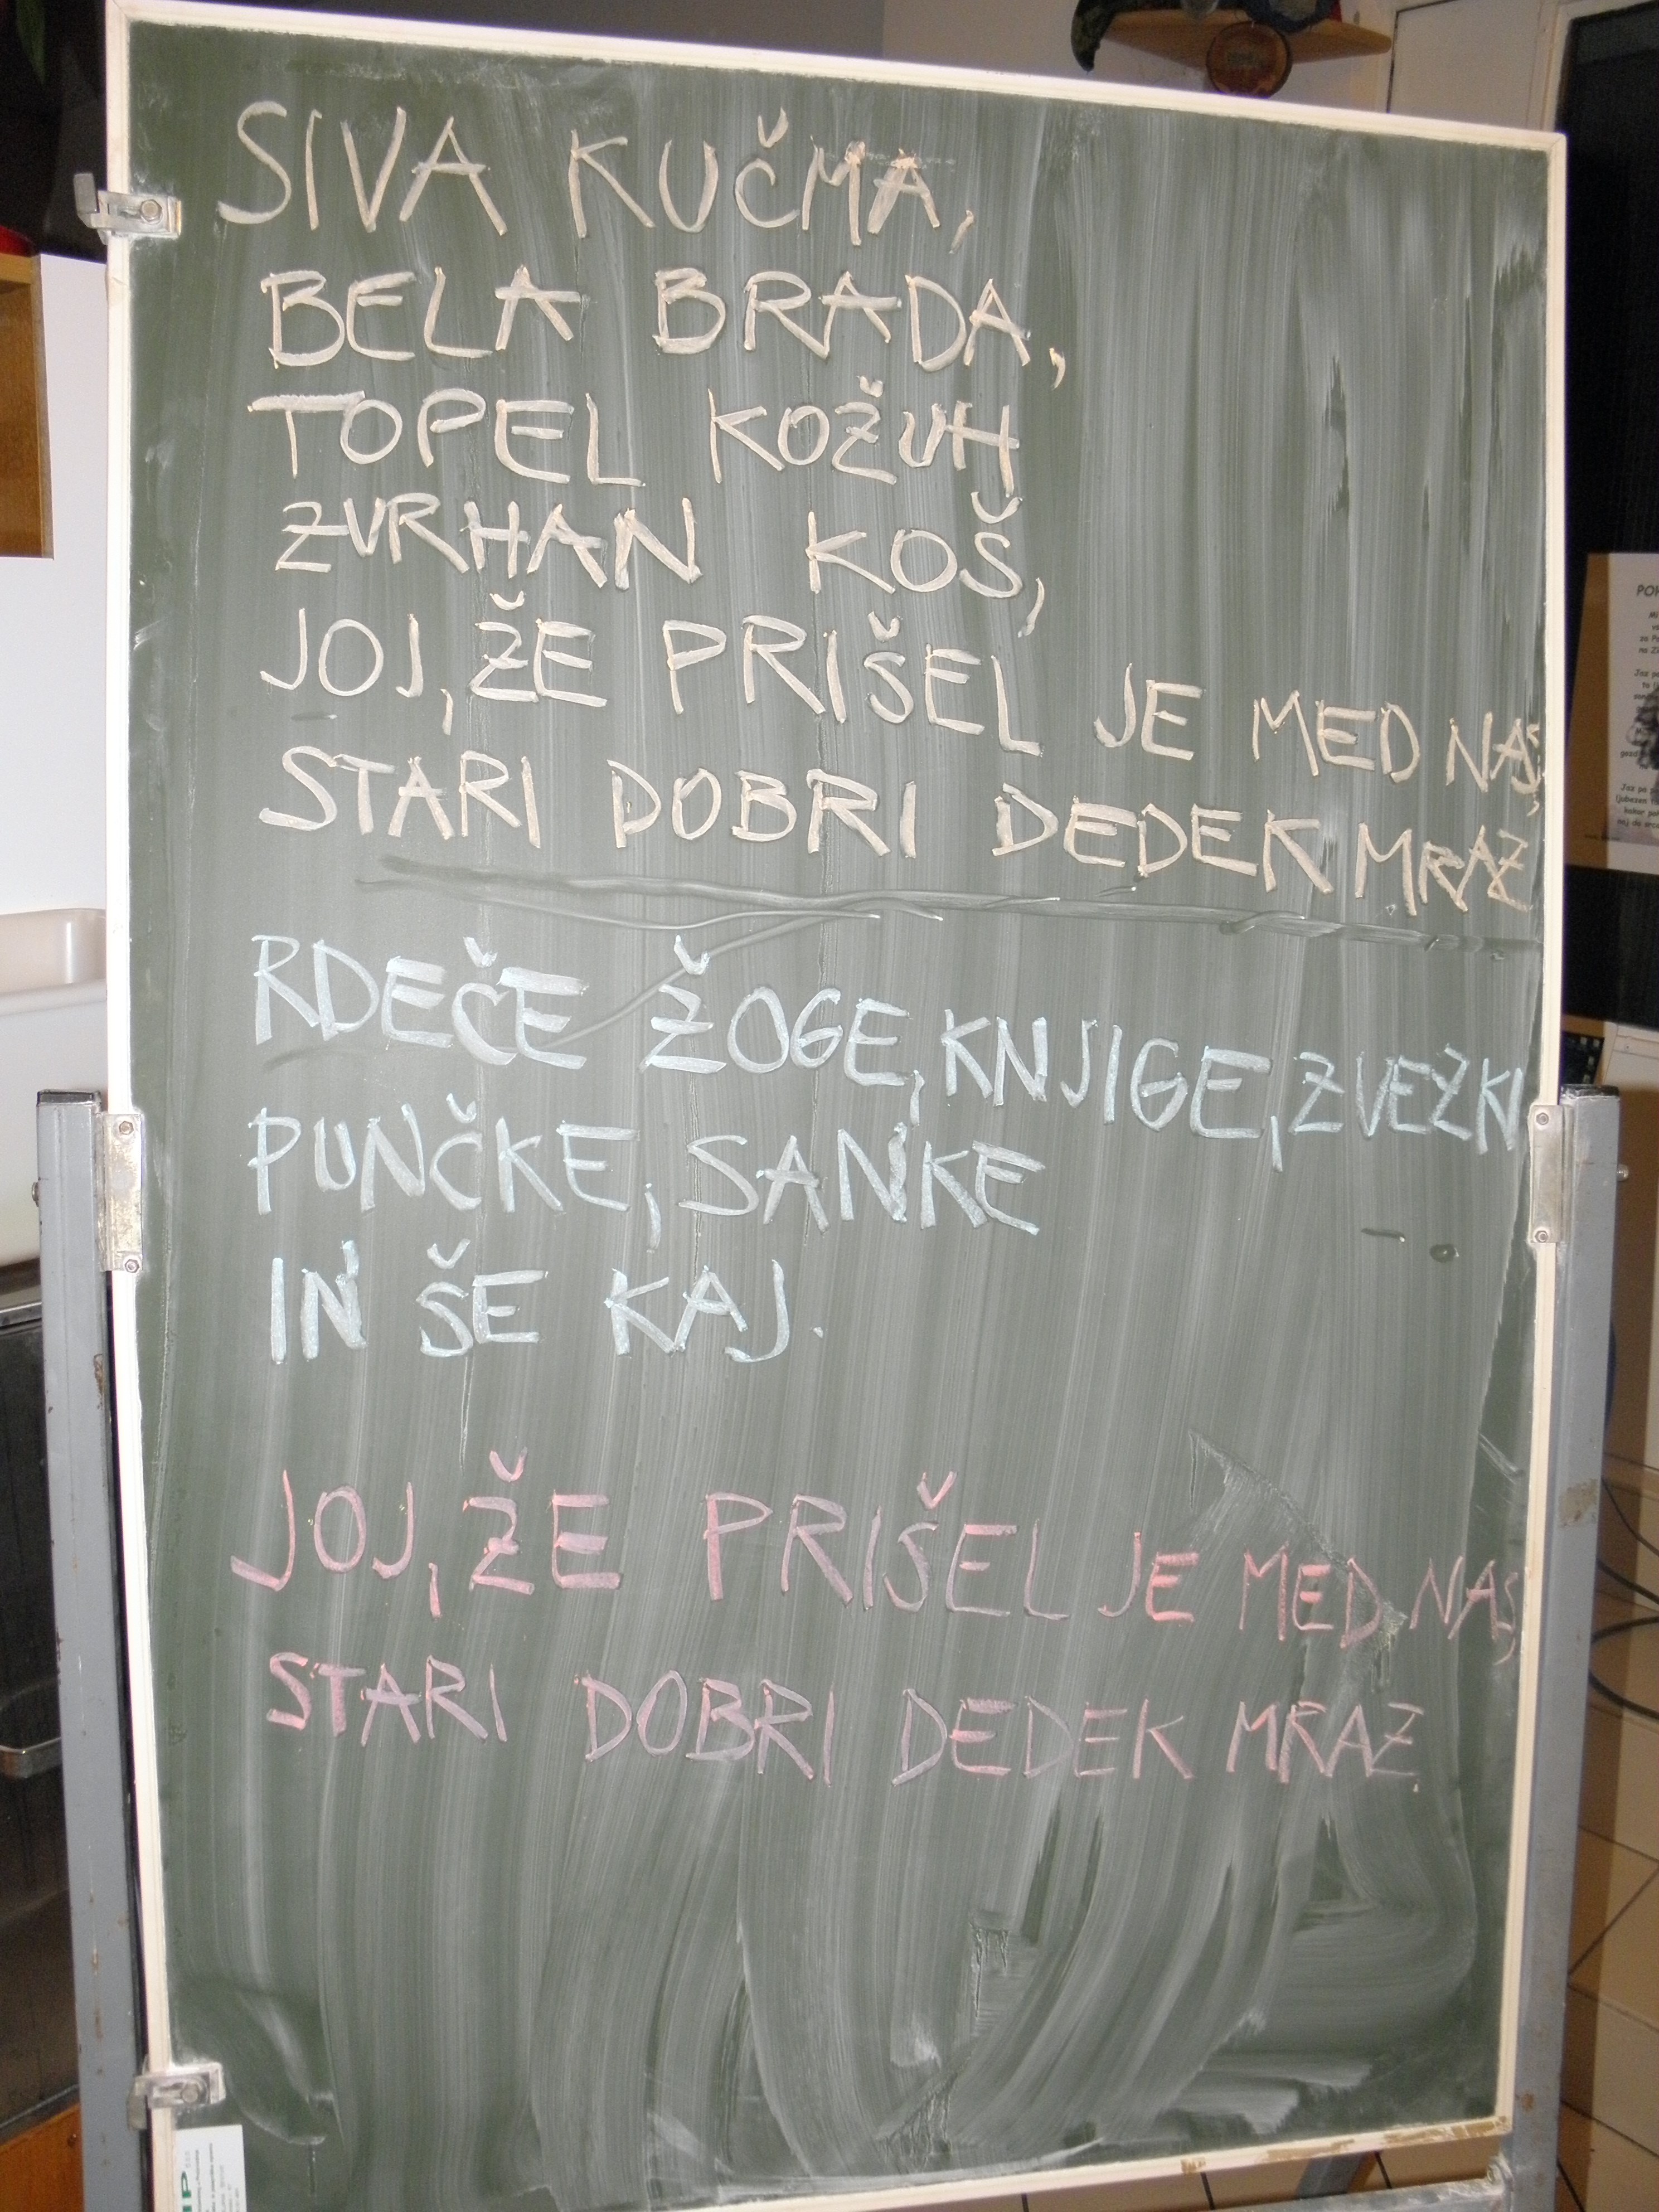 SIVA KUČMA,
BELA BRADA,
TOPEL KOŽUH
ZVRHAN KOŠ,
JOJ, ŽE PRIŠEL JE MED NAS,
STARI DOBRI DEDEK MRAZ
RDEČE ŽOGE, KNJIGE, ZVEZKI
PUNČKE, SANKE
IN ŠE KAJ.
JOJ, ŽE PRIŠEL JE MED NAS,
STARI DOBRI DEDEK MRAZ.